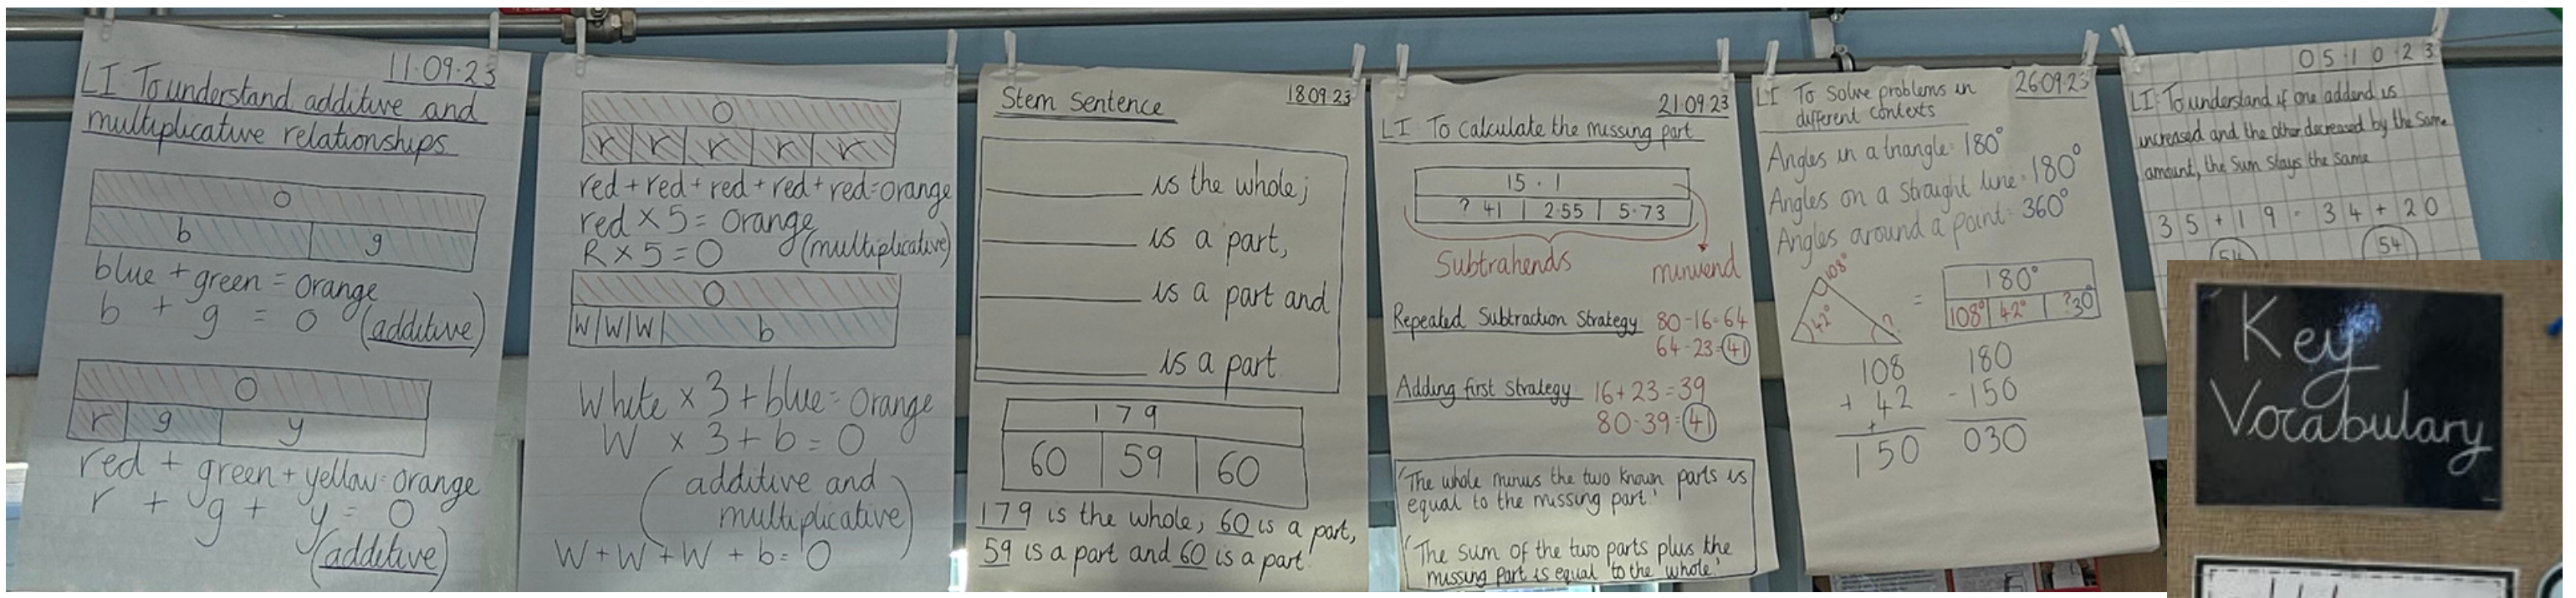 11.09.23
LI: To understand additive and
multiplicative relationships
O
b g
blue + green = orange
b + g = O (additive)
O
r g y
red + green + yellow = orange
r + g + y = O
(additive)
O
r r r r r
red + red + red + red + red = orange
red × 5 = orange
R × 5 = O (multiplicative)
O
W W W b
White × 3 + blue = orange
W × 3 + b = O
(additive and
multiplicative)
W + W + W + b = O
Stem Sentence 18.09.23
is the whole;
is a part,
is a part and
is a part.
179
60 59 60
179 is the whole; 60 is a part,
59 is a part and 60 is a part.
21.09.23
LI: To calculate the missing part
15.1
? 41 2.55 5.73
Subtrahends minuend
Repeated Subtraction Strategy 80-16=64
64-23=41
Adding first strategy 16+23=39
80-39=41
'The whole minus the two known parts is
equal to the missing part.'
'The sum of the two parts plus the
missing part is equal to the whole.'
LI To solve problems in 26.09.23
different contexts
Angles in a triangle = 180°
Angles on a straight line = 180°
Angles around a point = 360°
108°
42° ?
=
180°
108° 42° ?30°
108 180
+ 42 - 150
1
150 030
05.10.23
LI: To understand if one addend is
increased and the other decreased by the same
amount, the sum stays the same
35 + 19 = 34 + 20
54 54
Key
Vocabulary